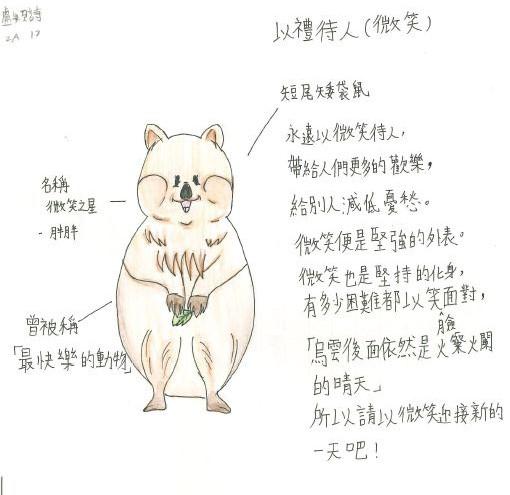 2A 17
以禮待人(微笑)
短尾矮袋鼠
永遠以微笑待人,
帶給人們更多的歡樂,
給別人減低憂愁。
微笑便是堅強的外表。
微笑也是堅持的化身,
有多少困難都以笑臉面對,
「烏雲後面依然是燦爛
的晴天」
所以請以微笑迎接新的
一天吧!
名稱
微笑之星
-胖胖
曾被稱
「最快樂的動物」